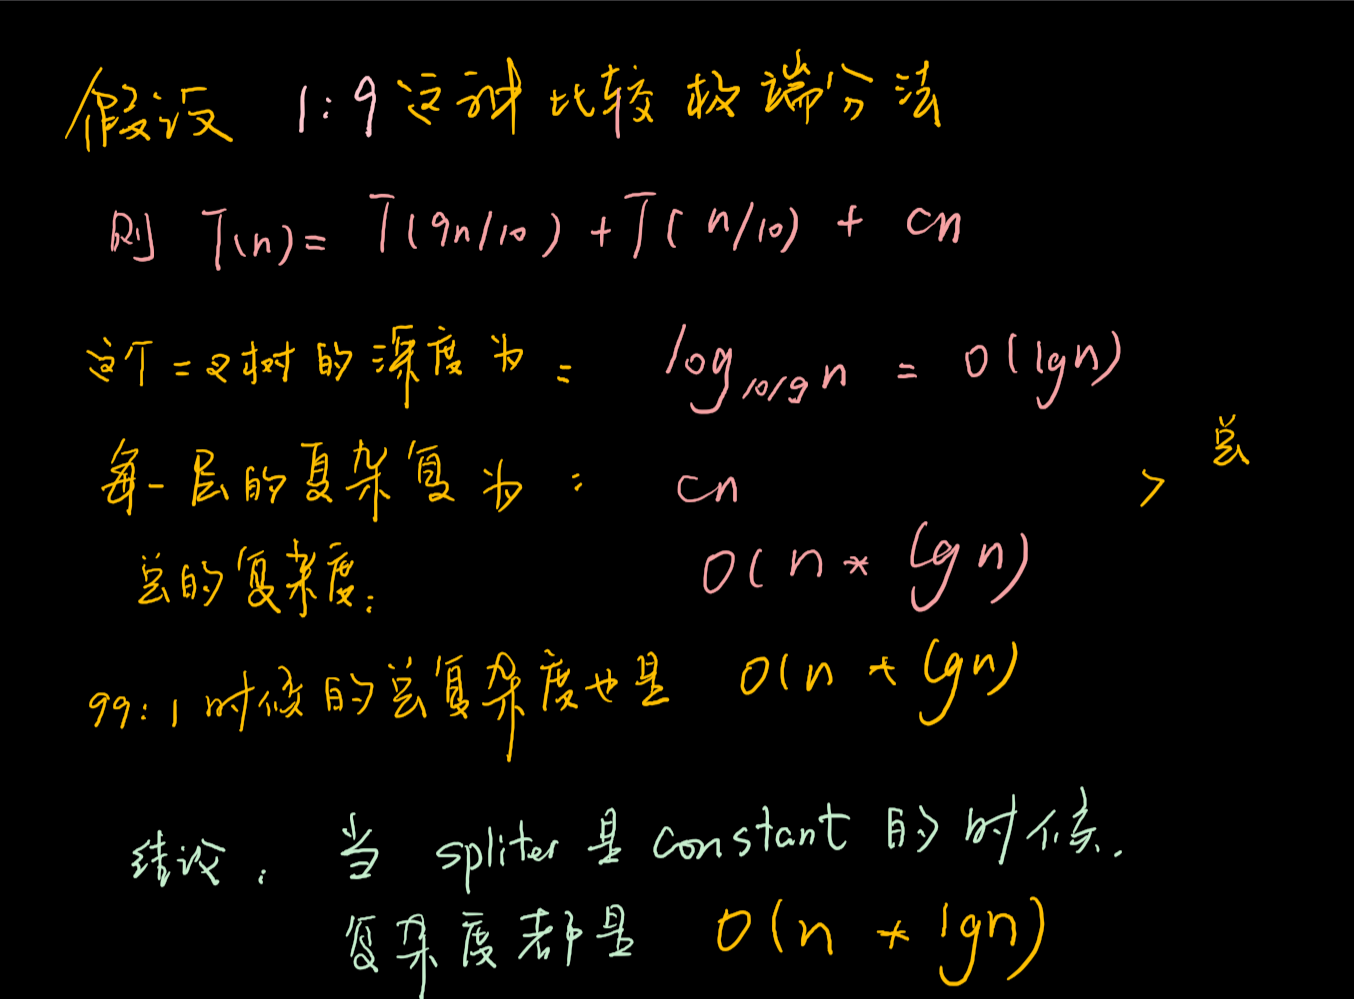 假设 1:9 这种比较极端分法
则 T(n) = T(9n/10) + T(n/10) + cn
这个二叉树的深度为: log10/9 n = O(lgn)
总
每一层的复杂复为: cn >
总的复杂度: O(n * lgn)
99:1 时候的总复杂度也是 O(n * lgn)
结论: 当 spliter 是 constant 的时候.
复杂度都是 O(n * lgn)